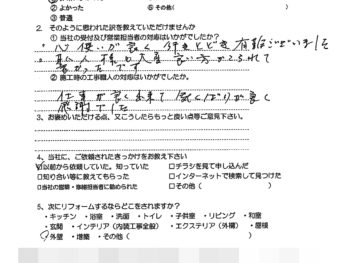 ② よかった ⑥ その他( )
③ 普通
2. そのように思われた訳を教えていただけませんか
① 当社の受付及び営業担当者の対応はいかがでしたか?
心使いが良く 行きとどき 有難ございました
② 施工時の工事職人の対応はいかがでしたか?
仕事が良く出来て 気くばりが良く
感謝でした
3. お褒めいただける点、又こうしたらもっと良い点等ご意見下さい。
4. 当社に、ご依頼されたきっかけをお教え下さい
☑以前から依頼していた。知っていた □チラシを見て申し込んだ
□知り合い等に教えてもらった □インターネットで検索して見つけた
□当社の営業・事務担当者に勧められた □その他( )
5、次にリフォームするならどこをされますか?
・キッチン ・浴室 ・洗面 ・トイレ ・子供室 ・リビング ・和室
・玄関 ・インテリア(内装工事全般) ・エクステリア(外構) ・屋根
・外壁 ・増築 ・その他( )